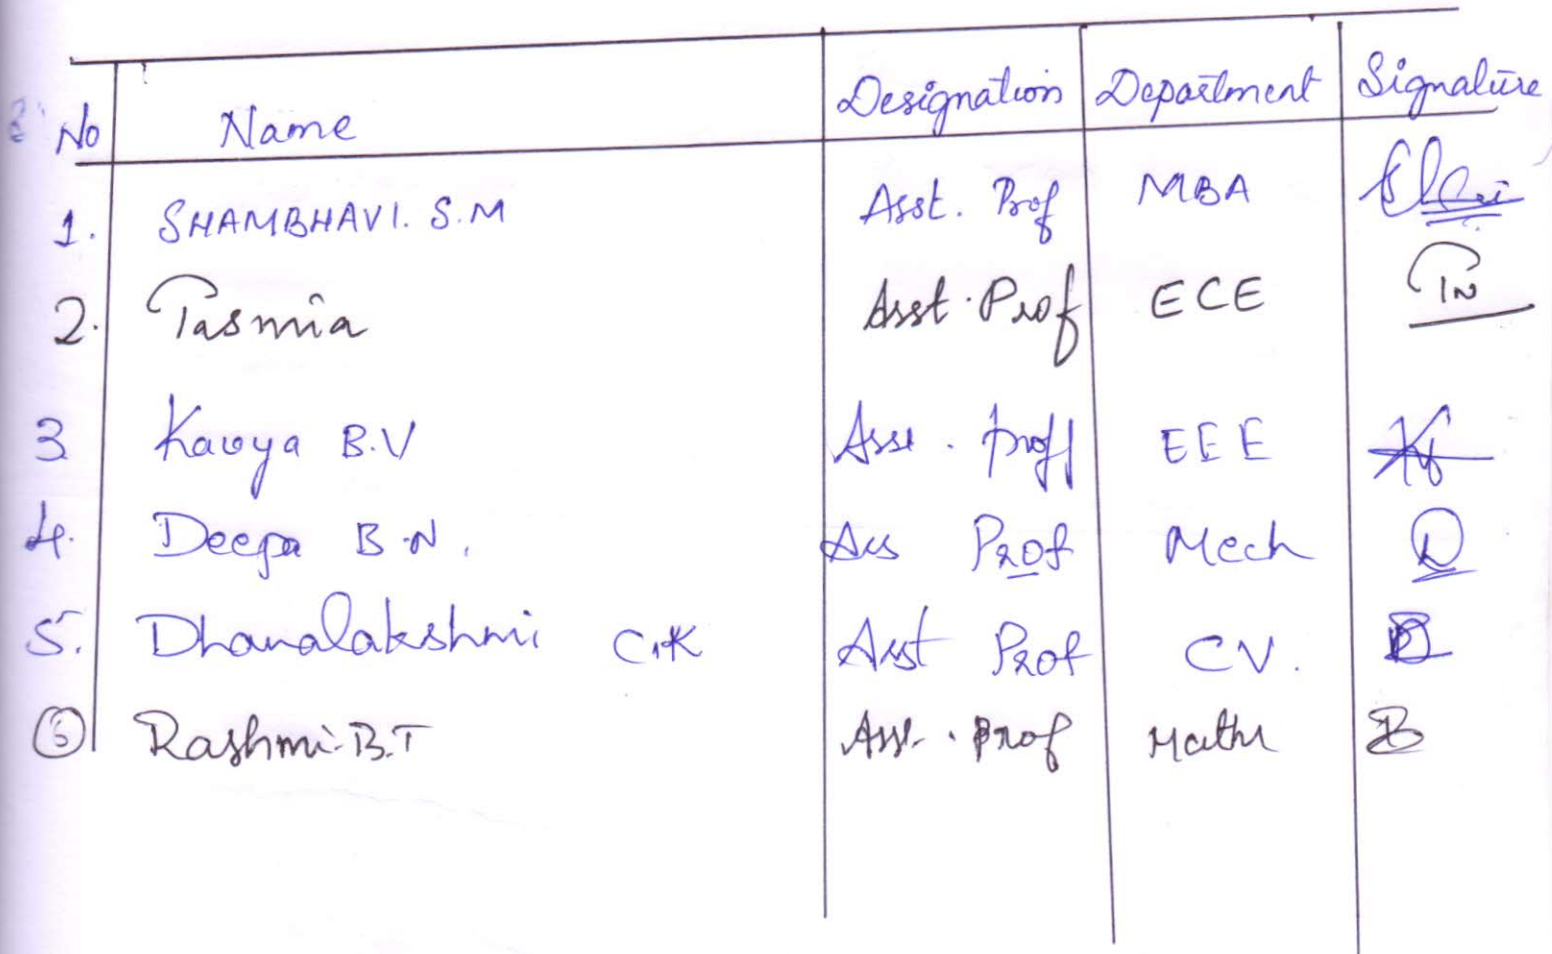 No Name Designation Department Signature
1. SHAMBHAVI. S.M Asst. Prof MBA
2. Tasmia Asst. Prof ECE TN
3 Kavya B.V Asst. Proff EEE
4. Deepa B.N. Ass Prof Mech D
5. Dhanalakshmi C.K Asst Prof CV.
6 Rashmi.B.T Asst. Prof Maths